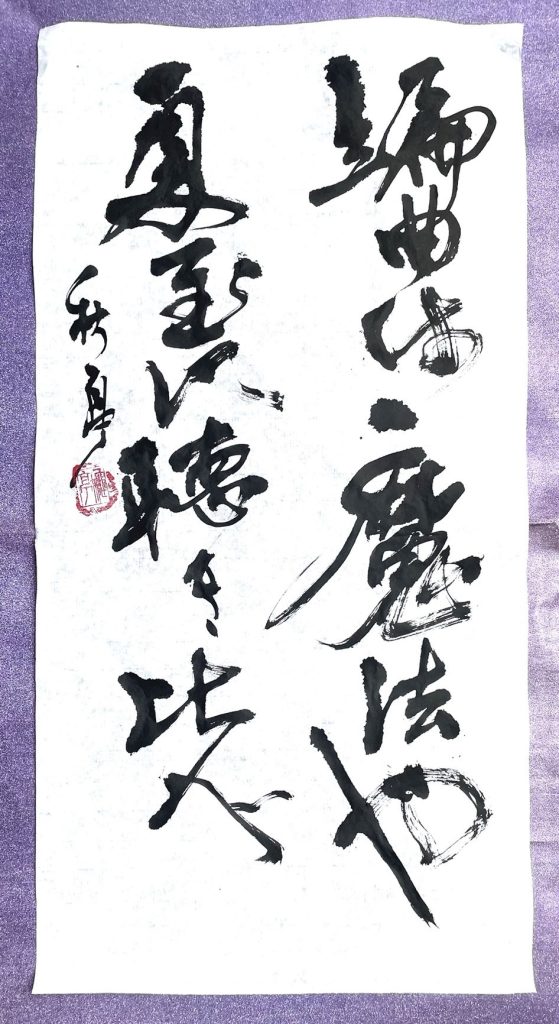 編曲は魔法や
夏至に聴き比べ
秋亭